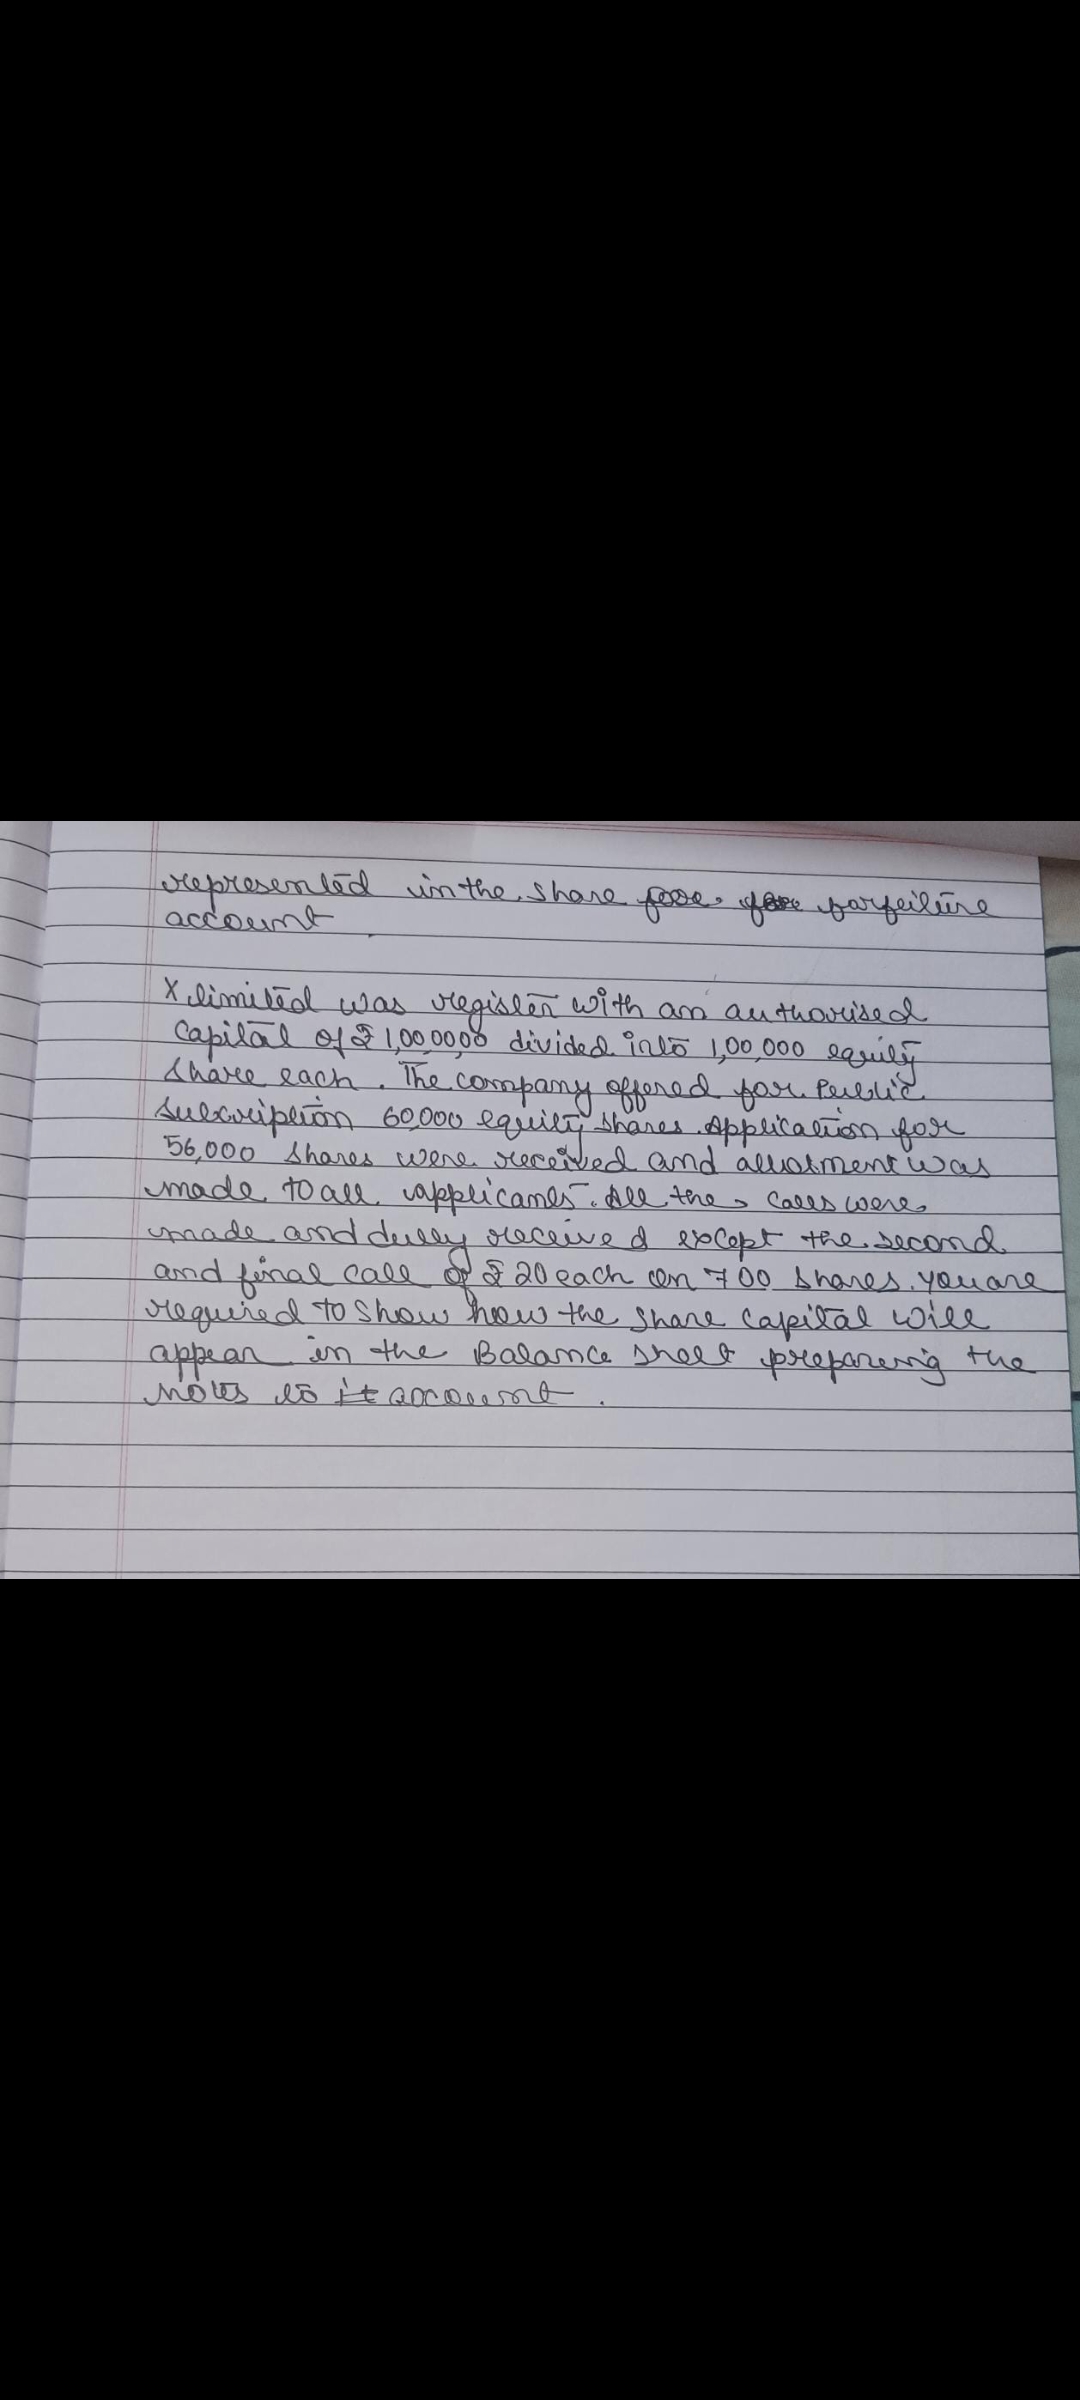 represented in the share forfeiture
account
X limited was register with an authorised
capital of ₹ 1,00,00,00 divided into 1,00,000 equity
share each. The company offered for Public
subscription 60,000 equity shares. Application for
56,000 shares were received and allotment was
made to all applicants. All the calls were
made and dully received except the second
and final call of ₹ 20 each on 700 shares. You are
required to show how the share capital will
appear in the Balance sheet preparing the
notes to account.